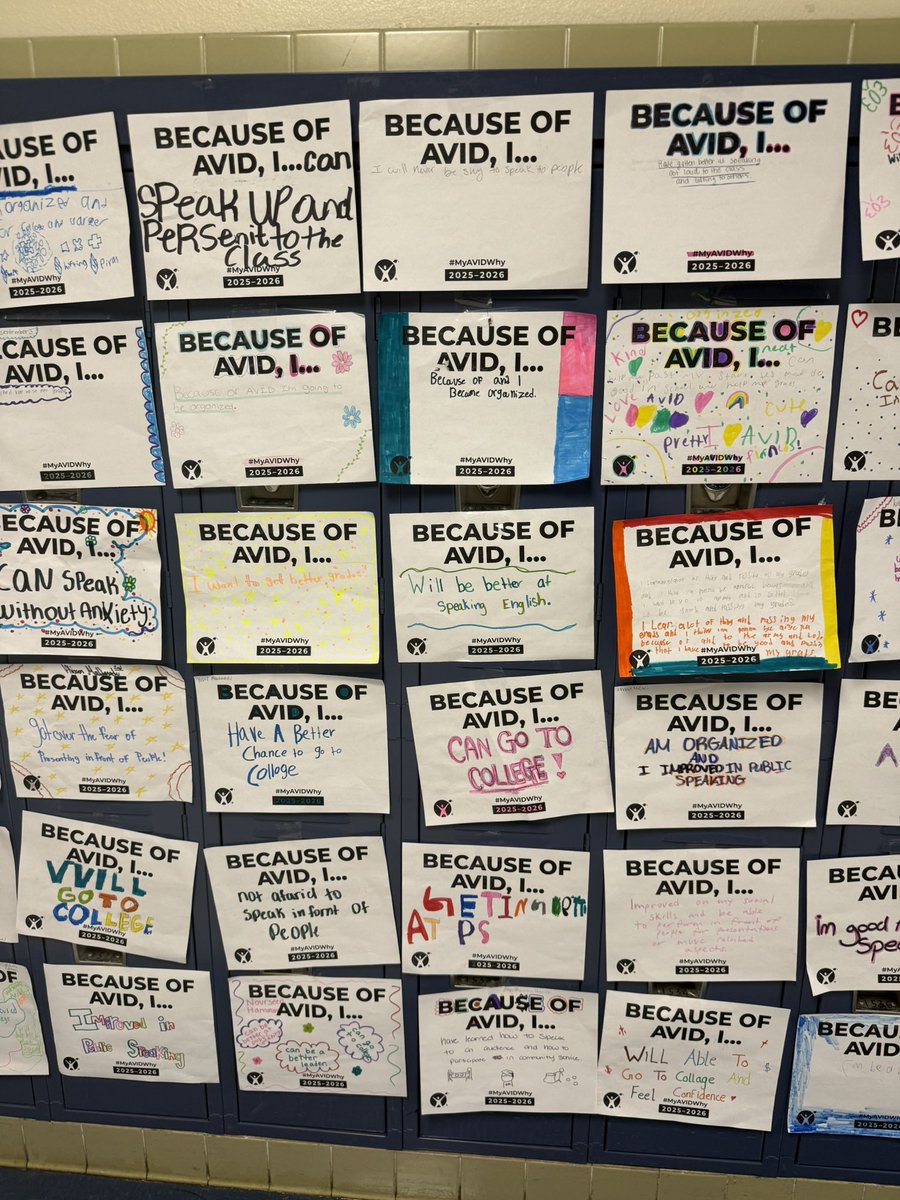 AUSE OF
VID, I...
organized and
college and career
#MyAVIDWhy
2025-2026
BECAUSE OF
AVID, I...can
SPeak UP and
PerSenit to the
Class
#MyAVIDWhy
2025-2026
BECAUSE OF
AVID, I...
I will never be shy to speak to people
#MyAVIDWhy
2025-2026
BECAUSE OF
AVID, I...
Have gotten better at speaking
out loud to the class
and talking to others.
#MyAVIDWhy
2025-2026
CAUSE OF
VID, I...
#MyAVIDWhy
2025-2026
BECAUSE OF
AVID, I...
Because of AVID Im going to
be organized.
#MyAVIDWhy
2025-2026
BECAUSE OF
AVID, I...
Because of and I
Became organized.
#MyAVIDWhy
2025-2026
organized
BECAUSE OF
AVID, I...
Kind
neat
can
Love
AVID
cute
pretty
I
AVID
friends!
#MyAVIDWhy
2025-2026
BECAU
AVID
Ca
In
BECAUSE OF
AVID, I...
CAN Speak
without Anxiety.
#MyAVIDWhy
2025-2026
BECAUSE OF
AVID, I...
I want to get better grades
#MyAVIDWhy
2025-2026
BECAUSE OF
AVID, I...
Will be better at
speaking English.
#MyAVIDWhy
2025-2026
BECAUSE OF
AVID, I...
I Lear alot of they and passing my
grads and I
because of
that I have
my grads.
#MyAVIDWhy
2025-2026
BECAUSE OF
AVID, I...
got over the fear of
Presenting in front of People!
#MyAVIDWhy
2025-2026
BECAUSE OF
AVID, I...
Have A Better
Chance to go to
College
#MyAVIDWhy
2025-2026
BECAUSE OF
AVID, I...
CAN GO TO
COLLEGE!
#MyAVIDWhy
2025-2026
BECAUSE OF
AVID, I...
AM ORGANIZED
AND
I IMPROVED IN PUBLIC
SPEAKING
#MyAVIDWhy
2025-2026
BECAU
AVID
A
BECAUSE OF
AVID, I...
WILL
GO TO
COLLEGE
#MyAVIDWhy
2025-2026
BECAUSE OF
AVID, I...
not afarid to
speak in fornt of
People
#MyAVIDWhy
2025-2026
BECAUSE OF
AVID, I...
GETING
AT PS
#MyAVIDWhy
2025-2026
BECAUSE OF
AVID, I...
Improved on my social
skills and be able
to perform in front of
people for presentations
or music related
aspects.
#MyAVIDWhy
2025-2026
BECAUS
AVID
im good
Spea
BECAUSE OF
AVID, I...
Improved in
Public Speaking
#MyAVIDWhy
2025-2026
BECAUSE OF
AVID, I...
can be a
better
leader
#MyAVIDWhy
2025-2026
BECAUSE OF
AVID, I...
have learned how to speak
to an audience and how to
participate in community service
#MyAVIDWhy
2025-2026
BECAUSE OF
AVID, I...
WILL Able To
Go To Collage And
Feel Confidence
#MyAVIDWhy
2025-2026
BECAU
AVID